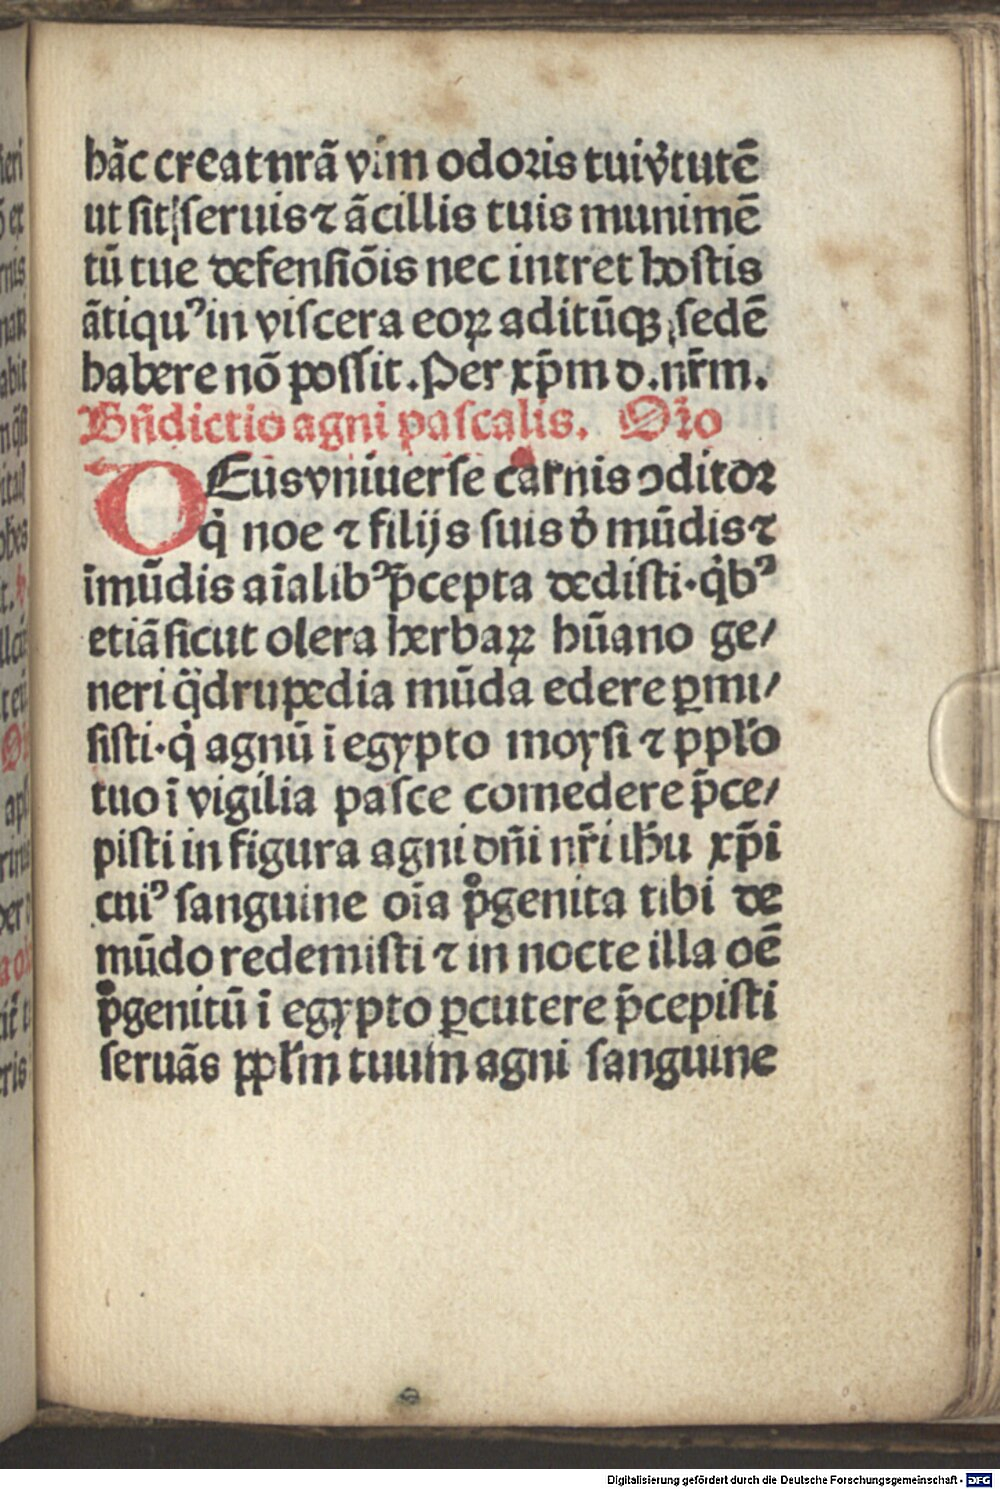 hãc creaturã vim odoris tui v̾tutē
ut sit seruis ⁊ ãcillis tuis munimē
tū tue defensiõis nec intret hostis
ãtiquꝰ in viscera eoꝝ aditūqꝫ sedē
habere nõ possit. Per xp̄m d. nr̄m.
Bñdictio agni pascalis. Or̄o
DEus vniuerse carnis ꝯditor
q̇ noe ⁊ filijs suis d̾ mūdis ⁊
īmūdis aīalibꝰ p̄cepta dedisti. q̇bꝰ
etiã sicut olera herbaꝝ hūano ge/
neri q̈drupedia mūda edere ꝑmi/
sisti. q̇ agnū ī egypto moysi ⁊ pplo̅
tuo ī vigilia pasce comedere p̄ce/
pisti in figura agni dñi nr̄i ih̄u xp̄i
cuiꝰ sanguine oīa pͦgenita tibi de
mūdo redemisti ⁊ in nocte illa oē
pͦgenitū ī egypto ꝑcutere p̄cepisti
seruãs ppl̄m tuum agni sanguine
Digitalisierung gefördert durch die Deutsche Forschungsgemeinschaft - DFG